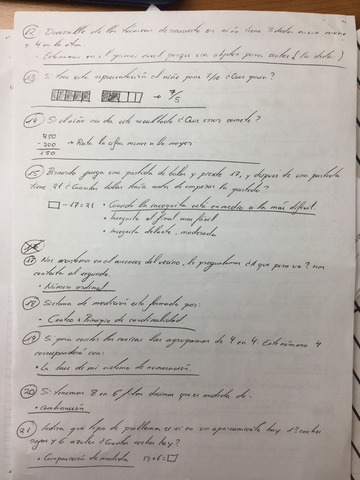 12 Desarrollo de las técnicas de recuento un niño tiene 3 dedos en una mano
y 4 en la otra
- Estaríamos en el primer nivel porque usa objetos para contar (los dedos)
13 Si hace esta representación el niño para 7/10 ¿Qué pasa?
→ 7/5
14 Si el niño nos da este resultado ¿Que error comete?
450
-200 → Resta la cifra menor a la mayor
150
15 Bernardo juega una partida de bolas y pierde 17, y después de una partida
tiene 21 ¿Cuántas bolas había antes de empezar la partida?
□ - 17 = 21 • Cuando la incógnita está en medio es la más difícil.
• Incógnita al final más fácil
• Incógnita delante, moderada
17 Nos montamos en el ascensor del vecino, le preguntamos ¿A que piso va? nos
contesta al segundo.
• Número ordinal
18 Sistema de medición está formado por:
- Conteo + Principio de cardinalidad
19 Si para contar las varillas las agrupamos de 4 en 4. Este número 4
correspondería con:
• La base de mi sistema de numeración.
20 Si tenemos 8 en 6 / las decimos que es medida de
• combinación
21 Indica que tipo de problema es si en un aparcamiento hay 13 coches
rojos y 6 azules ¿Cuántos coches hay?
• Comparación de medida 13+6=□